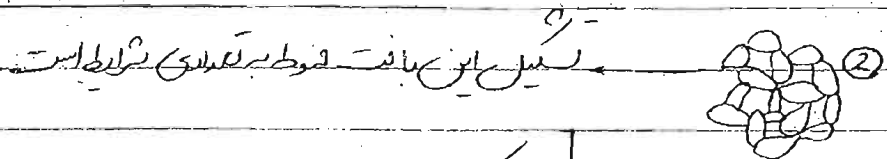 ② تشکیل این بافت منوط به تعدادی شرایط است